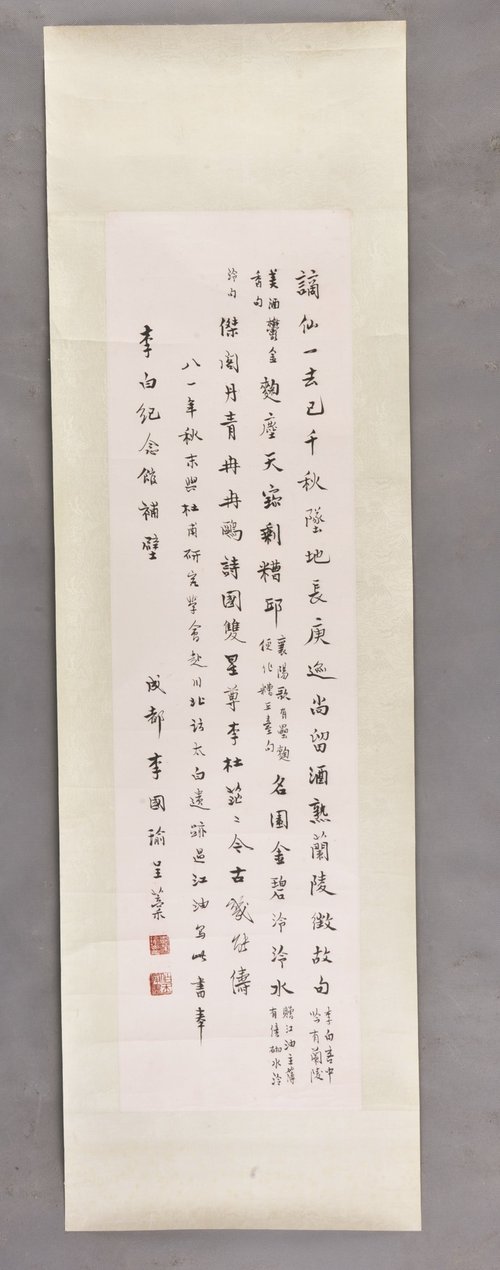 謫仙一去已千秋墜地長庚迹尚留酒熟蘭陵徵故句李白客中吟有蘭陵
美酒鬱金香句麴塵天剩糟邱襄陽歌有壘麴便作糟丘臺句名園金碧泠泠水贈江油主薄有倩砌水泠
泠句傑閣丹青冉冉鷗詩國雙星尊李杜茫〻今古幾能儔
八一年秋末與杜甫研究学會赴川北訪太白遺跡過江油写此書奉
李白紀念館補壁 成都李國瑜呈藁